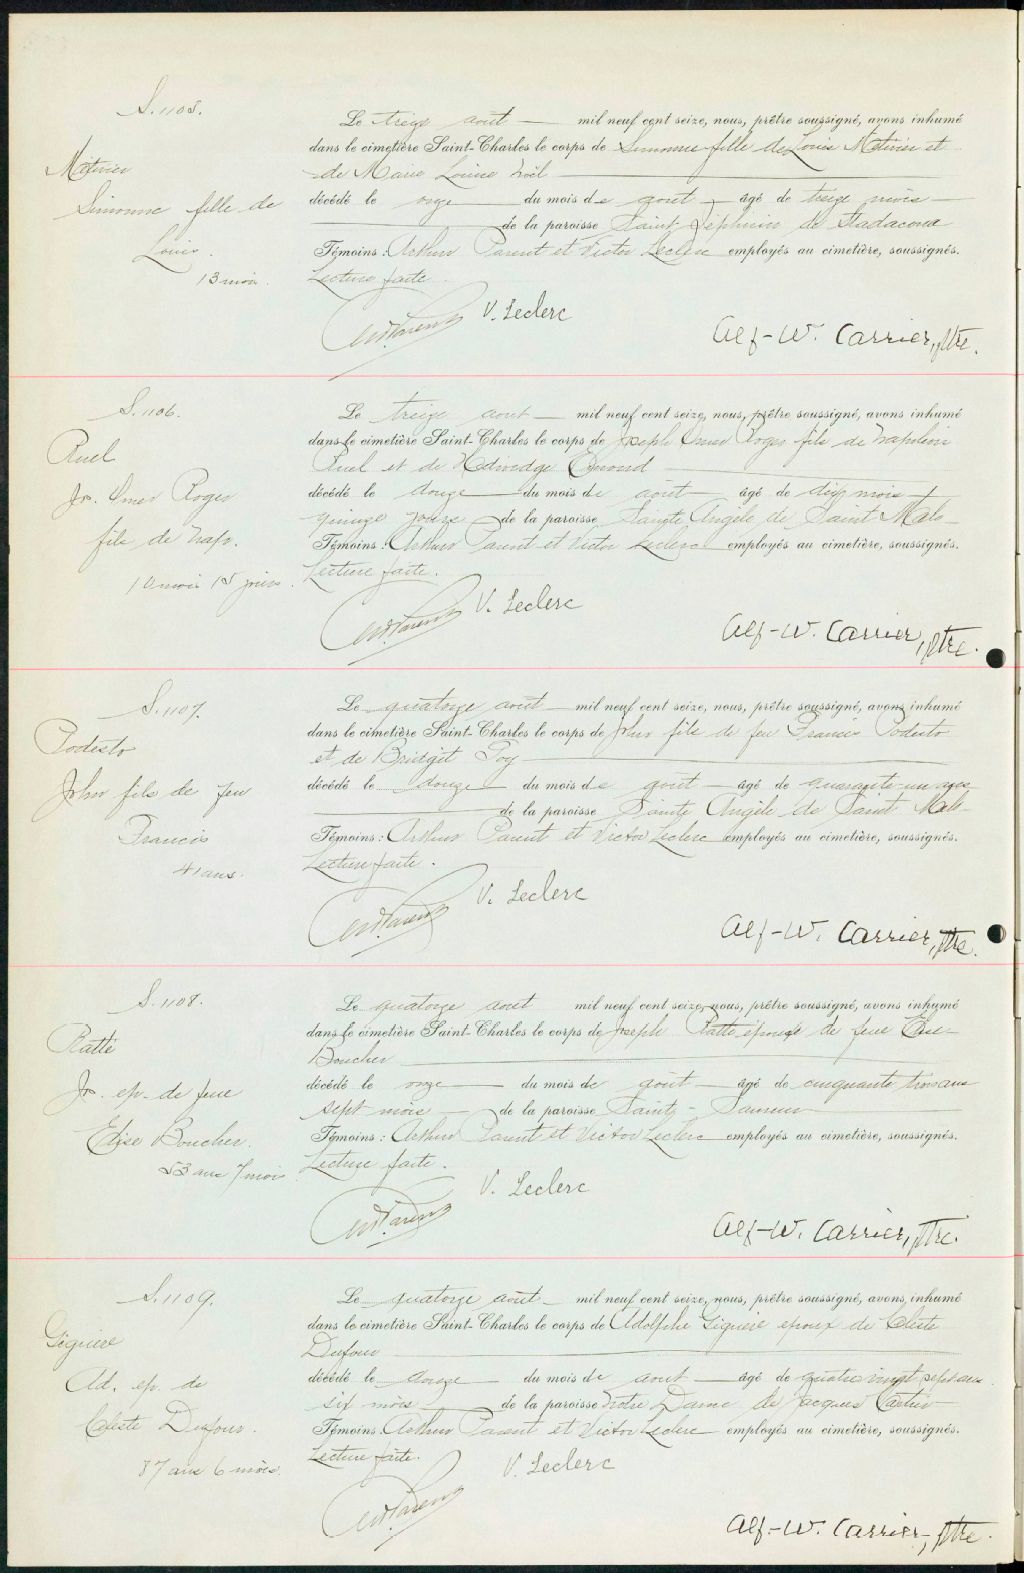 S. 1105.
Métivier
Simonne fille de
Louis.
13 mois.
Le treize août — mil neuf cent seize, nous, prêtre soussigné, avons inhumé
dans le cimetière Saint-Charles le corps de Simonne fille de Louis Métivier et
de Marie Louise Noël
décédé le onze du mois de août âgé de treize mois
de la paroisse Saint Zéphirin de Stadacona
Témoins : Arthur Parent et Victor Leclerc employés au cimetière, soussignés.
Lecture faite.
V. Leclerc
Alf-W. Carrier, ptre.
S. 1106.
Ruel
Jos. Omer Roger
fils de Nap.
10 mois 15 jours.
Le treize août — mil neuf cent seize, nous, prêtre soussigné, avons inhumé
dans le cimetière Saint-Charles le corps de Joseph Omer Roger fils de Napoléon
Ruel et de Hedwidge Emond
décédé le douze du mois de août âgé de dix mois
quinze jours de la paroisse Sainte Angèle de Saint Malo
Témoins : Arthur Parent et Victor Leclerc employés au cimetière, soussignés.
Lecture faite.
V. Leclerc
Alf-W. Carrier, ptre.
S. 1107.
Podesto
John fils de feu
Francis
41 ans.
Le quatorze août — mil neuf cent seize, nous, prêtre soussigné, avons inhumé
dans le cimetière Saint-Charles le corps de John fils de feu Francis Podesto
et de Bridgit Foy
décédé le douze du mois de août âgé de quarante-un ans
de la paroisse Sainte Angèle de Saint Malo
Témoins : Arthur Parent et Victor Leclerc employés au cimetière, soussignés.
Lecture faite.
V. Leclerc
Alf-W. Carrier, ptre.
S. 1108.
Ratté
Jos. ep. de feue
Elise Boucher.
53 ans 7 mois
Le quatorze août mil neuf cent seize, nous, prêtre soussigné, avons inhumé
dans le cimetière Saint-Charles le corps de Joseph Ratté époux de feue Elise
Boucher
décédé le onze du mois de août âgé de cinquante trois ans
sept mois de la paroisse Saint-Sauveur
Témoins : Arthur Parent et Victor Leclerc employés au cimetière, soussignés.
Lecture faite.
V. Leclerc
Alf-W. Carrier, ptre.
S. 1109.
Giguère
Ad. ep. de
Céleste Dufour.
87 ans 6 mois
Le quatorze août — mil neuf cent seize, nous, prêtre soussigné, avons inhumé
dans le cimetière Saint-Charles le corps de Adolphe Giguère époux de Céleste
Dufour
décédé le douze du mois de août âgé de quatre vingt sept ans
six mois de la paroisse Notre Dame de Jacques Cartier
Témoins : Arthur Parent et Victor Leclerc employés au cimetière, soussignés.
Lecture faite.
V. Leclerc
Alf-W. Carrier, ptre.